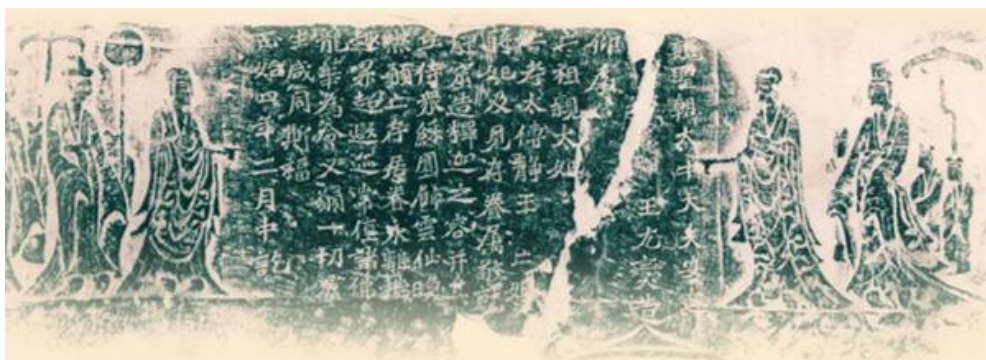 魏聖朝太中大夫安定
王元燮造
仰為
亡祖親太妃
亡考太傅靜王亡妣
蔣妃及見存眷屬敬就
靜窟造釋迦之容并其
立侍衆綵圓飾雲仙映
然願亡存居眷永離穢
趣昇超遐迩常值諸佛
龍華為會又願一切羣
生咸同斯福
正始四年二月中訖